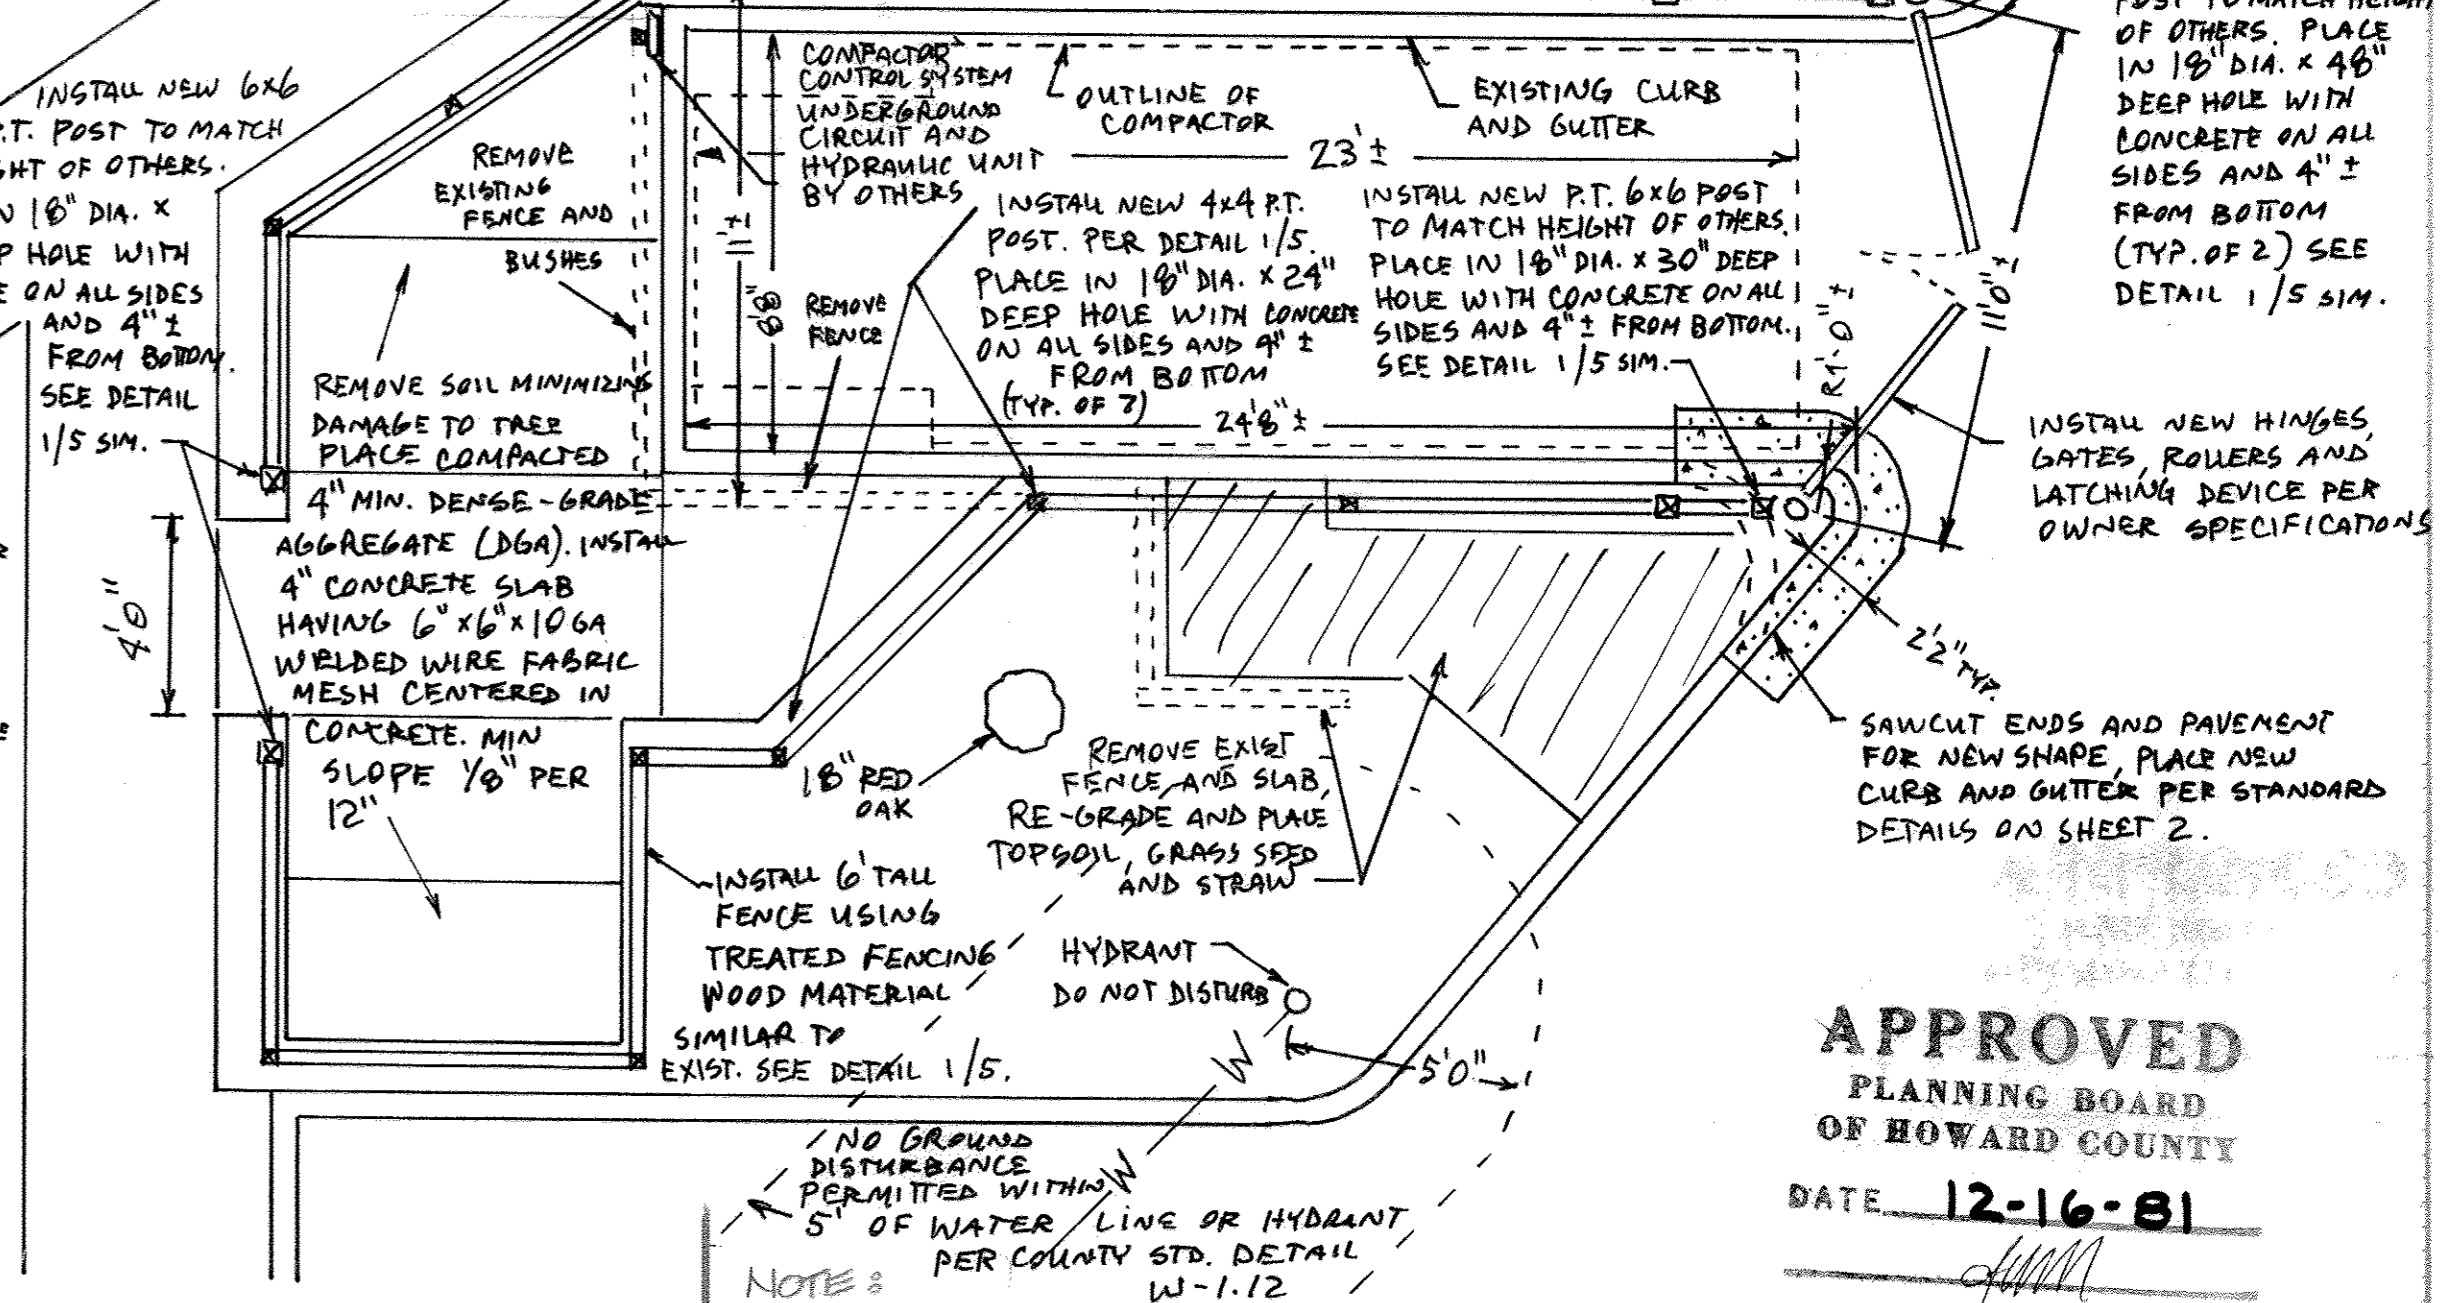 INSTALL NEW 6x6
P.T. POST TO MATCH
OF OTHERS.
18" DIA. x
HOLE WITH
ON ALL SIDES
AND 4" ±
FROM BOTTOM.
SEE DETAIL
1/5 SIM.
4'0"
REMOVE
EXISTING
FENCE AND
BUSHES
REMOVE SOIL MINIMIZING
DAMAGE TO TREE
PLACE COMPACTED
4" MIN. DENSE-GRADE
AGGREGATE (DGA). INSTALL
4" CONCRETE SLAB
HAVING 6"x6"x10GA
WELDED WIRE FABRIC
MESH CENTERED IN
CONCRETE. MIN
SLOPE 1/8" PER
12"
COMPACTOR
CONTROL SYSTEM
UNDERGROUND
CIRCUIT AND
HYDRAULIC UNIT
BY OTHERS
11'±
8'8"
REMOVE
FENCE
OUTLINE OF
COMPACTOR
EXISTING CURB
AND GUTTER
23'±
INSTALL NEW 4x4 P.T.
POST. PER DETAIL 1/5.
PLACE IN 18" DIA. x 24"
DEEP HOLE WITH CONCRETE
ON ALL SIDES AND 4" ±
FROM BOTTOM
(TYP. OF 7)
24'8" ±
INSTALL NEW P.T. 6x6 POST
TO MATCH HEIGHT OF OTHERS.
PLACE IN 18" DIA. x 30" DEEP
HOLE WITH CONCRETE ON ALL
SIDES AND 4" ± FROM BOTTOM.
SEE DETAIL 1/5 SIM.
R1'-0"±
11'0"±
POST TO MATCH HEIGHT
OF OTHERS. PLACE
IN 18" DIA. x 48"
DEEP HOLE WITH
CONCRETE ON ALL
SIDES AND 4" ±
FROM BOTTOM
(TYP. OF 2) SEE
DETAIL 1/5 SIM.
INSTALL NEW HINGES,
GATES, ROLLERS AND
LATCHING DEVICE PER
OWNER SPECIFICATIONS
2'2" TYP.
SAWCUT ENDS AND PAVEMENT
FOR NEW SHAPE, PLACE NEW
CURB AND GUTTER PER STANDARD
DETAILS ON SHEET 2.
18" RED
OAK
REMOVE EXIST
FENCE, AND SLAB,
RE-GRADE AND PLACE
TOPSOIL, GRASS SEED
AND STRAW
INSTALL 6' TALL
FENCE USING
TREATED FENCING
WOOD MATERIAL
SIMILAR TO
EXIST. SEE DETAIL 1/5.
HYDRANT
DO NOT DISTURB
W
5'0"
W
NO GROUND
DISTURBANCE
PERMITTED WITHIN
5' OF WATER LINE OR HYDRANT
PER COUNTY STD. DETAIL
W-1.12
NOTE:
APPROVED
PLANNING BOARD
OF HOWARD COUNTY
DATE 12-16-81